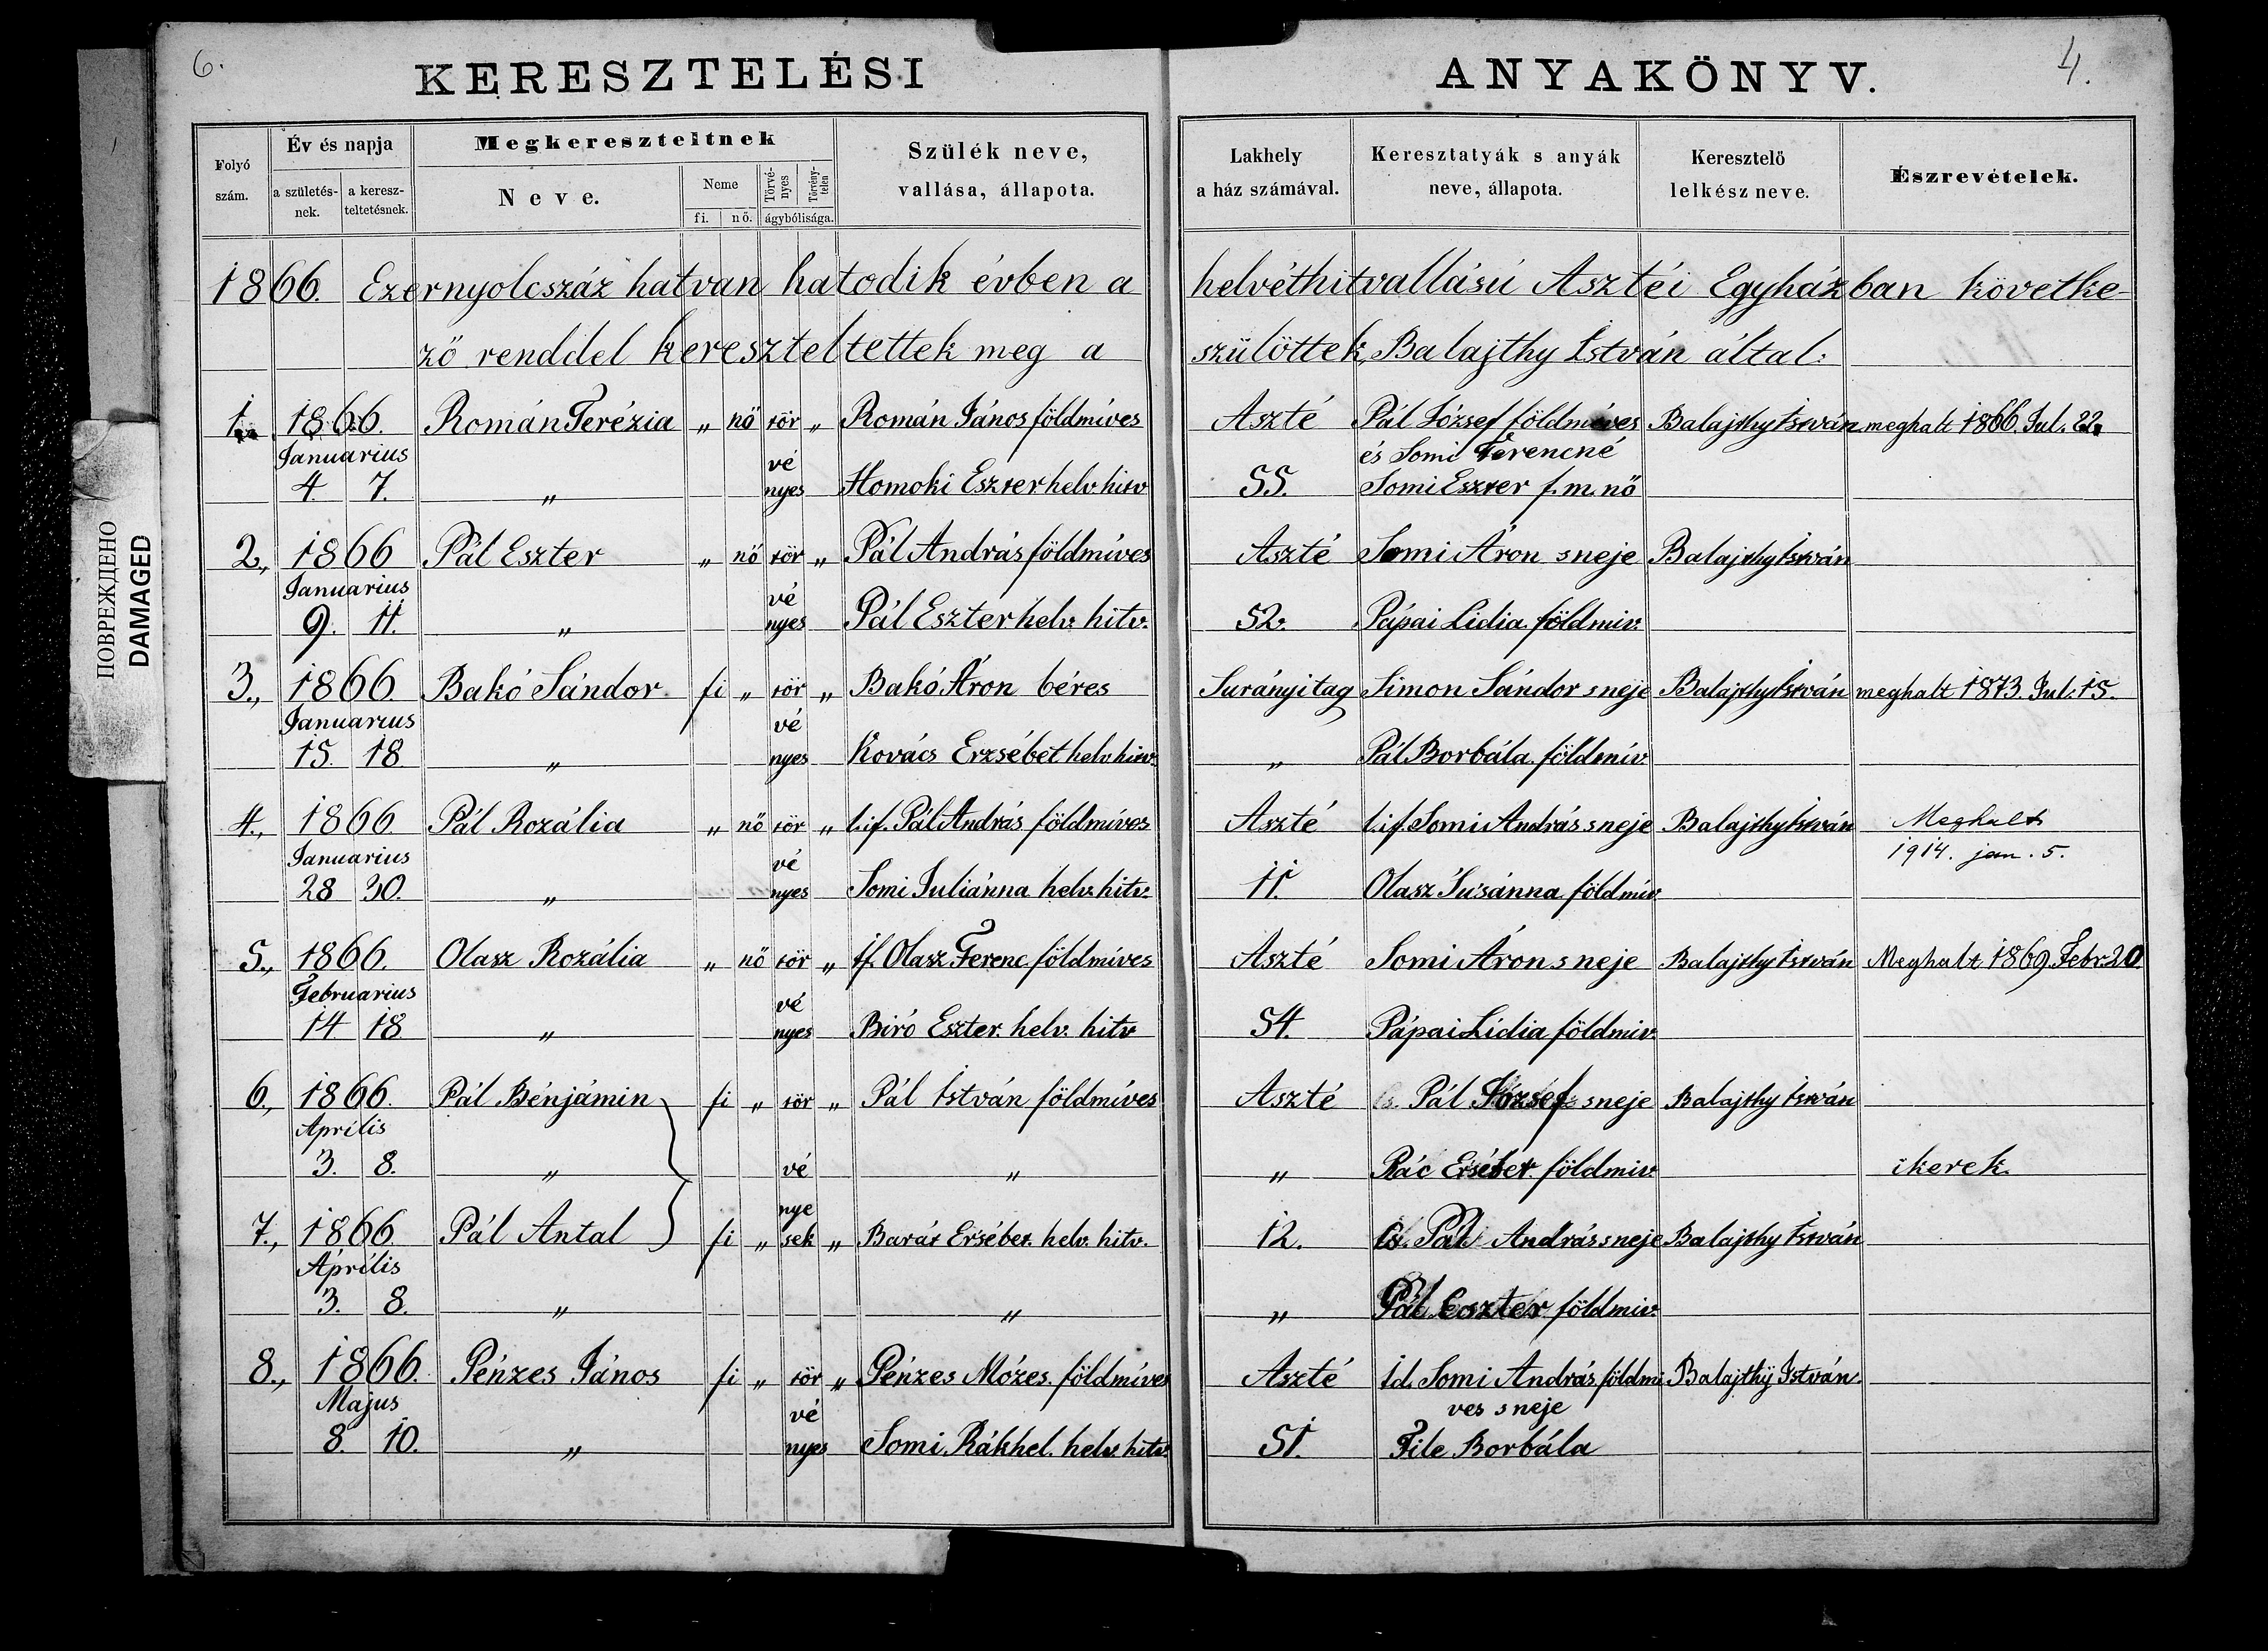 6.
KERESZTELÉSI
ANYAKÖNYV.
4.
ПОВРЕЖДЕНО
DAMAGED
Folyó szám.
Év és napja
a születés-nek.
a keresz-teltetésnek.
Megkereszteltnek
Neve.
Neme
fi. nő.
Törvé-nyes
Törvény-telen
ágybólisága.
Szülék neve,
vallása, állapota.
Lakhely
a ház számával.
Keresztatyák s anyák
neve, állapota.
Keresztelő
lelkész neve.
Észrevételek.
1866. Ezernyolcszáz hatvan hatodik évben a helvéthitvallású Asztéi Egyházban követke-
ző renddel kereszteltettek meg a szülöttek, Balajthy István által:
1. 1866. Román Terézia „ nő tör „ Román János földmíves Aszté Pál József földmíves Balajthy István meghalt 1866. Jul. 22.
Januarius vé és Somi Ferencné
4. 7. „ nyes Homoki Eszter helv. hitv 55. Somi Eszter f. m. nő
2., 1866 Pál Eszter „ nő tör „ Pál András földmíves Aszté Somi Áron s neje Balajthy István
Januarius vé
9. 11. „ nyes Pál Eszter helv. hitv. 52. Pápai Lidia földmiv.
3., 1866. Bakó Sándor fi „ tör „ Bakó Áron béres Surányi tag Simon Sándor s neje Balajthy István meghalt 1873. Jul. 15.
Januarius vé
15. 18. „ nyes Kovács Erzsébet helv. hitv. „ Pál Borbála földmiv
4., 1866. Pál Rozália „ nő tör „ l. if. Pál András földmíves Aszté l. if. Somi András s neje Balajthy István Meghalt
Januarius vé 1914. jan. 5.
28 30. „ nyes Somi Juliánna helv. hitv. 11. Olasz Susánna földmiv.
5., 1866. Olasz Rozália „ nő tör „ if. Olasz Ferenc földmíves Aszté Somi Áron s neje Balajthy István Meghalt 1869. Febr. 20
Februarius vé
14. 18. „ nyes Biró Eszter. helv. hitv 54. Pápai Lidia földmiv.
6., 1866. Pál Bénjámin fi „ tör „ Pál István földmíves Aszté Pál József s neje Balajthy István
Aprílis
3. 8. „ vé „ „ Rác Ersébet földmiv. ikerek.
nye
7., 1866. Pál Antal fi „ sek „ Barát Ersébet. helv. hitv. 12. Pál András s neje Balajthy István
Áprílis
3. 8. „ „ „ Pál Eszter földmiv.
8., 1866. Pénzes János fi „ tör „ Pénzes Mózes. földmíves Aszté Id. Somi András földmi Balajthÿ István.
Majus vé ves s neje
8. 10. „ nyes Somi Rákhel. helv. hitv. 51. File Borbála